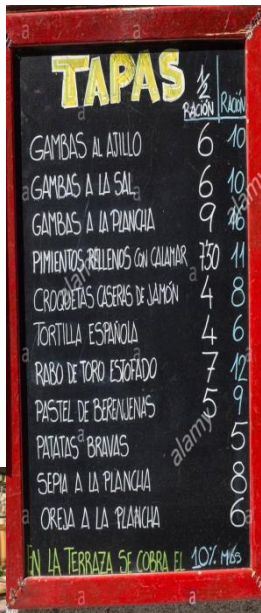 TAPAS
½ RACIÓN RACIÓN
GAMBAS AL AJILLO 6 10
GAMBAS A LA SAL 6 10
GAMBAS A LA PLANCHA 9 16
PIMIENTOS RELLENOS CON CALAMAR 7'50 11
CROQUETAS CASERAS DE JAMÓN 4 8
TORTILLA ESPAÑOLA 4 6
RABO DE TORO ESTOFADO 7 12
PASTEL DE BERENJENAS 5 9
PATATAS BRAVAS 5
SEPIA A LA PLANCHA 8
OREJA A LA PLANCHA 6
EN LA TERRAZA SE COBRA EL 10% MÁS
alamy
alamy
alamy